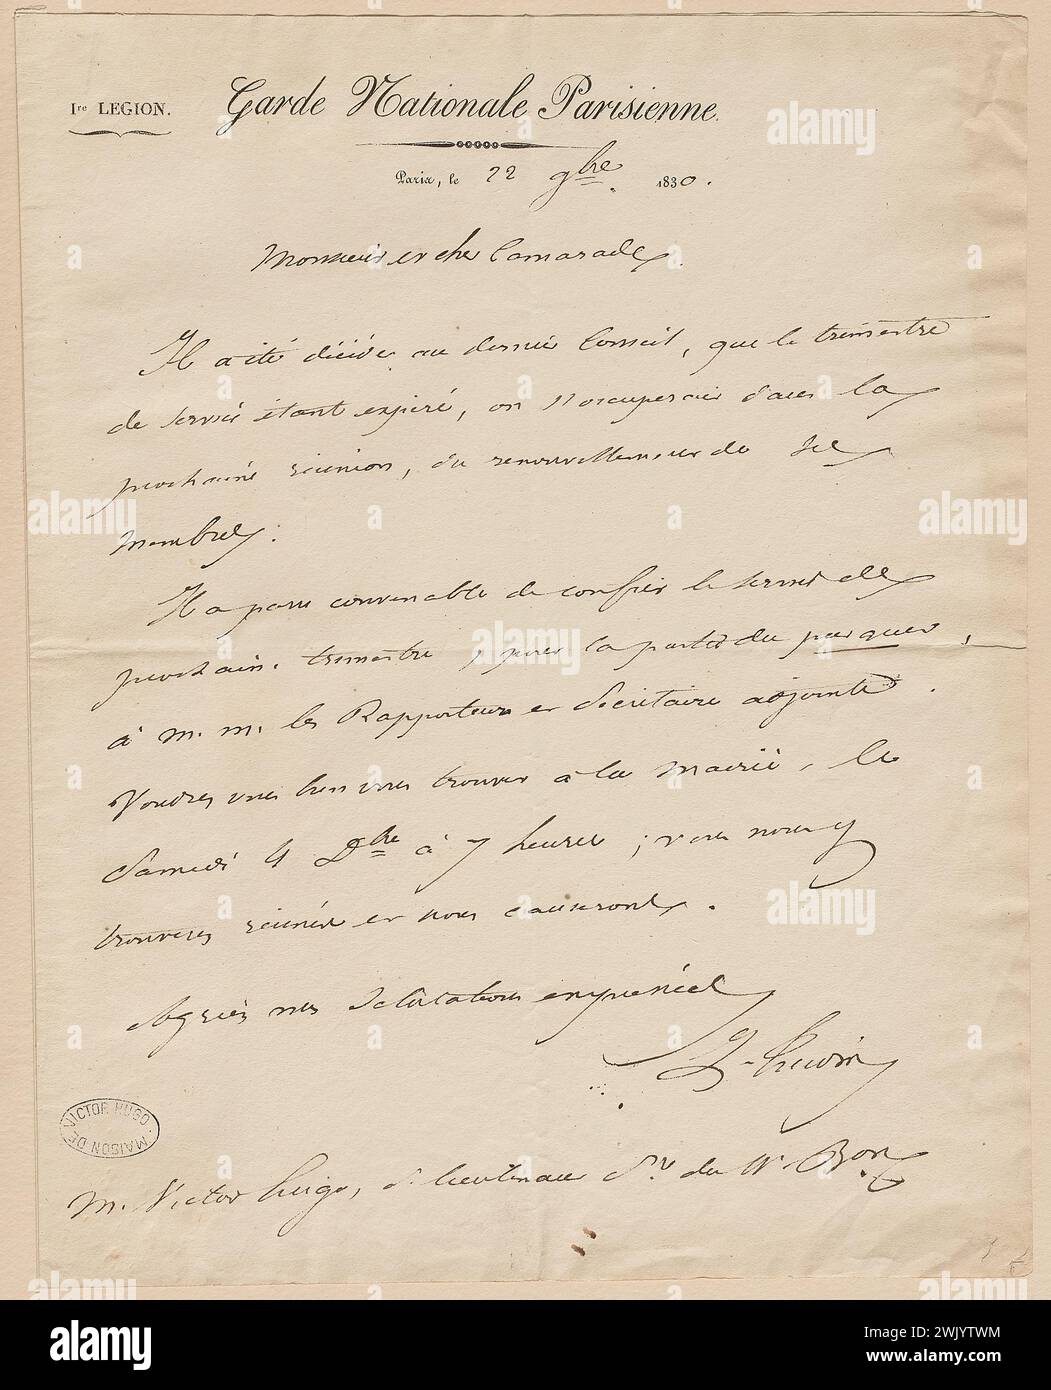 Ire LEGION.
Garde Nationale Parisienne.
Paris, le 22 9bre. 1830.
Monsieur et cher Camarade,
Il a été décidé au dernier Conseil, que le trimestre
de service étant expiré, on s'occuperait dans la
prochaine réunion, du renouvellement de ses
membres.
Il a paru convenable de confier le service de
prochain trimestre, pour la partie du parquet,
à M. M. les Rapporteur et Secrétaire adjoints.
Voudrez vous bien vous trouver à la Mairie, le
Samedi 4 Dbre à 7 heures ; vous nous y
trouverez réunis et nous causerons.
Agréez nos salutations empressées
MAISON DE VICTOR HUGO
M. Victor hugo, S. lieutenant du 4e Bon
alamy
Image ID: 2WJYTWM
www.alamy.com